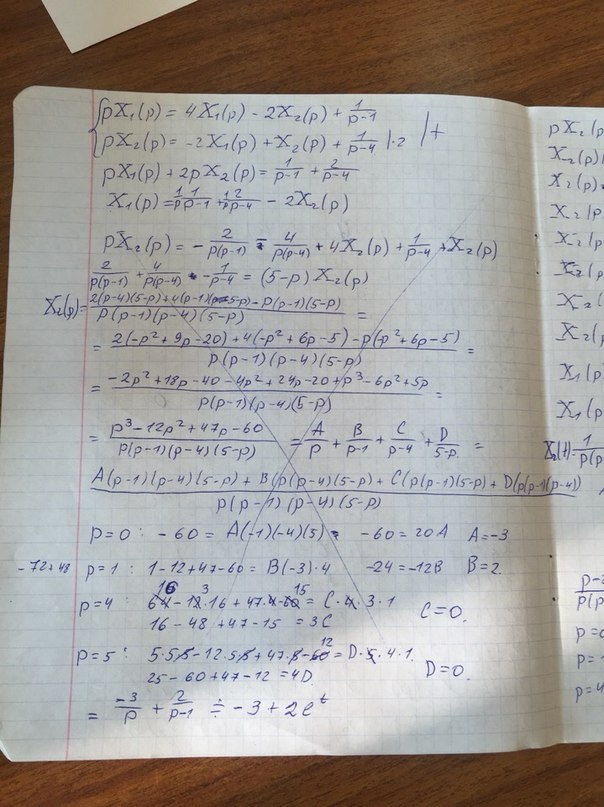 { pX₁(p) = 4X₁(p) - 2X₂(p) + 1/(p-1)
pX₂(p) = -2X₁(p) + X₂(p) + 1/(p-4) |·2 | +
pX₁(p) + 2pX₂(p) = 1/(p-1) + 2/(p-4)
X₁(p) = 1/p 1/(p-1) + 1/p 2/(p-4) - 2X₂(p)
pX₂(p) = - 2/(p(p-1)) - 4/(p(p-4)) + 4X₂(p) + 1/(p-4) + X₂(p)
2/(p(p-1)) + 4/(p(p-4)) - 1/(p-4) = (5-p) X₂(p)
X₂(p) = (2(p-4)(5-p) + 4(p-1)(5-p) - p(p-1)(5-p))/(p(p-1)(p-4)(5-p)) =
= (2(-p²+9p-20) + 4(-p²+6p-5) - p(-p²+6p-5))/(p(p-1)(p-4)(5-p)) =
= (-2p²+18p-40-4p²+24p-20+p³-6p²+5p)/(p(p-1)(p-4)(5-p)) =
= (p³-12p²+47p-60)/(p(p-1)(p-4)(5-p)) = A/p + B/(p-1) + C/(p-4) + D/(5-p) =
(A(p-1)(p-4)(5-p) + B(p(p-4)(5-p) + C(p(p-1)(5-p) + D(p(p-1)(p-4))/(p(p-1)(p-4)(5-p))
p=0: -60 = A(-1)(-4)(5) = -60=20A A=-3
-72+48 p=1: 1-12+47-60 = B(-3)·4 -24=-12B B=2
p=4: 64-12·16+47·4-60 = C·4·3·1 C=0.
16-48+47-15 = 3C
p=5: 5·5·5-12·5·5+47·5-60 = D·5·4·1 D=0.
25-60+47-12=4D
= -3/p + 2/(p-1) ≑ -3+2eᵗ
pX₂(p
X₂(p)
X₂(p)
X₂(p
X₂(p
X₂(p
X₂(p
X₂(p
X₁(p
X₁(p
X₂(t)=1/(p(p
p=0
p=
p=4